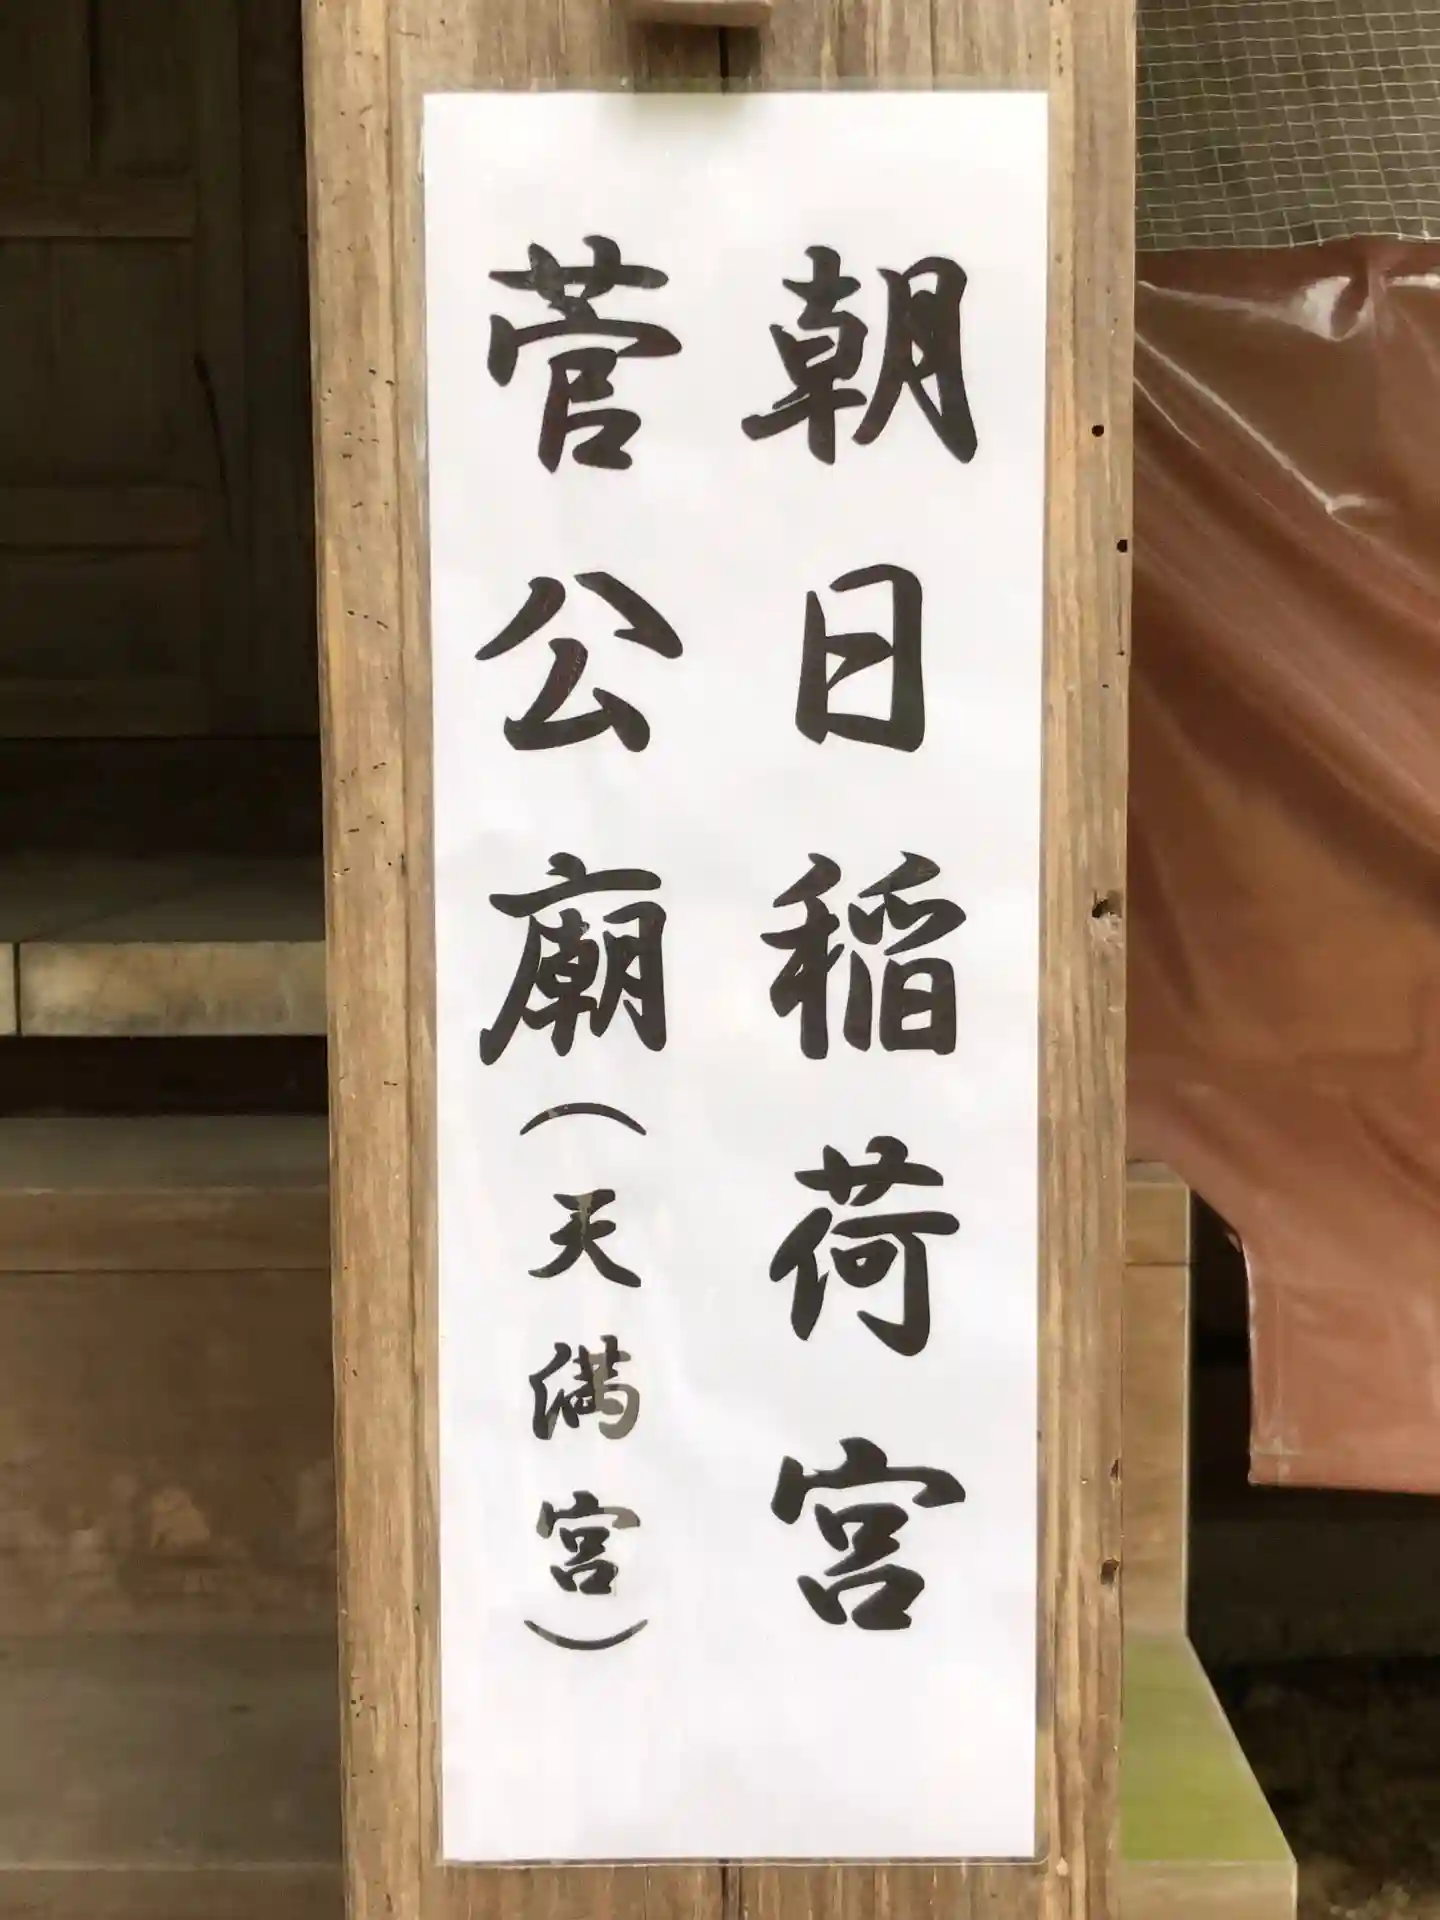 朝日稲荷宮
菅公廟(天満宮)